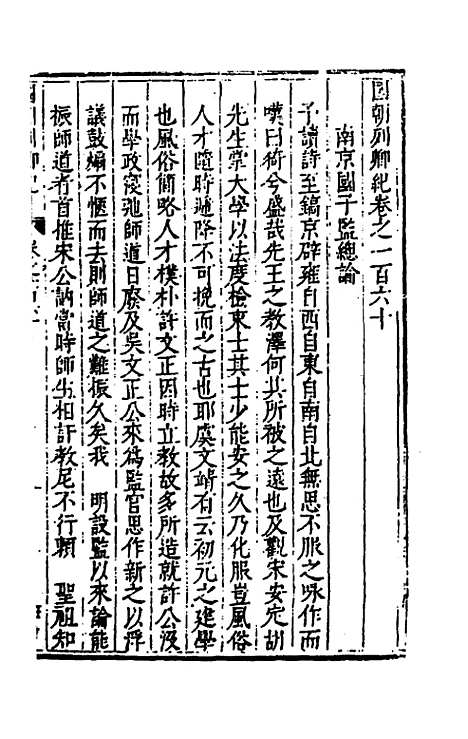 國朝列卿紀卷之一百六十
南京國子監總論
予讀詩至鎬京辟雍自西自東自南自北無思不服之咏作而
嘆曰猗兮盛哉先王之教澤何其所被之遠也及觀宋安定胡
先生掌大學以法度檢束士其士少能安之久乃化服豈風俗
人才隨時遞降不可挽而之古也耶虞文靖有云初元之建學
也風俗簡略人才樸朴許文正因時立教故多所造就許公沒
而學政寖弛師道日廢及吳文正公來為監官思作新之以浮
議鼓煽不愜而去則師道之難振久矣我　明設監以來論能
振師道者首推宋公訥當時師生相訐教尼不行賴　聖祖知